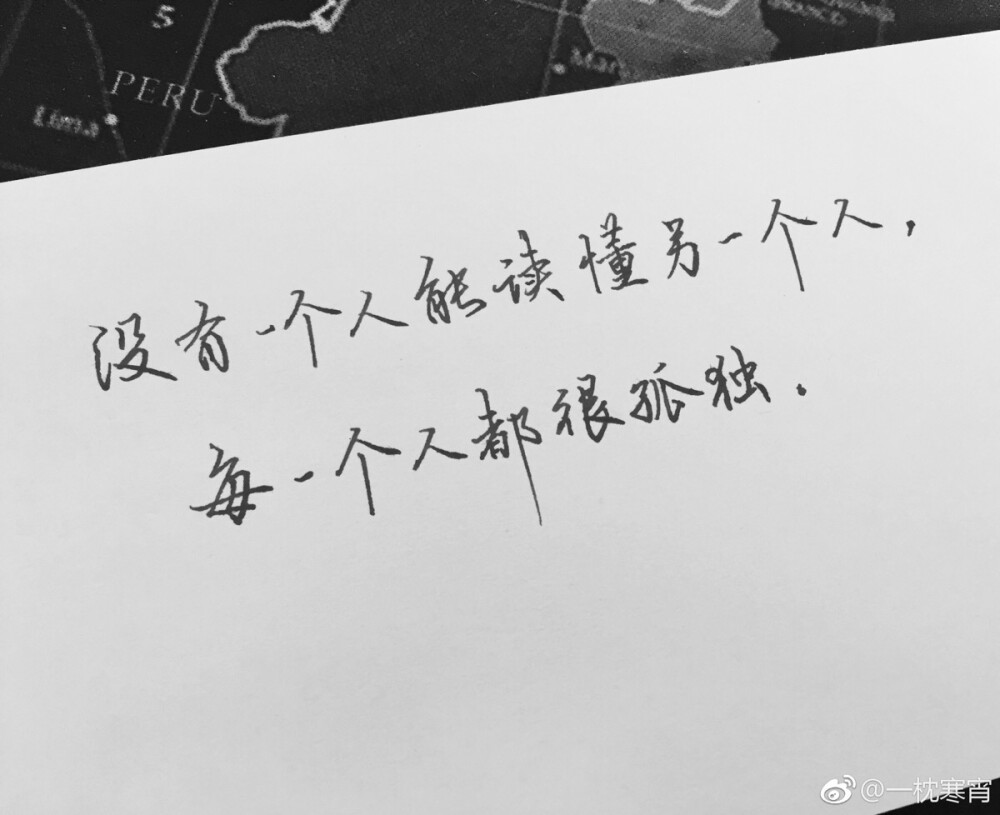 5
PERU
Lima
没有一个人能读懂另一个人,
每一个人都很孤独.
@一枕寒宵